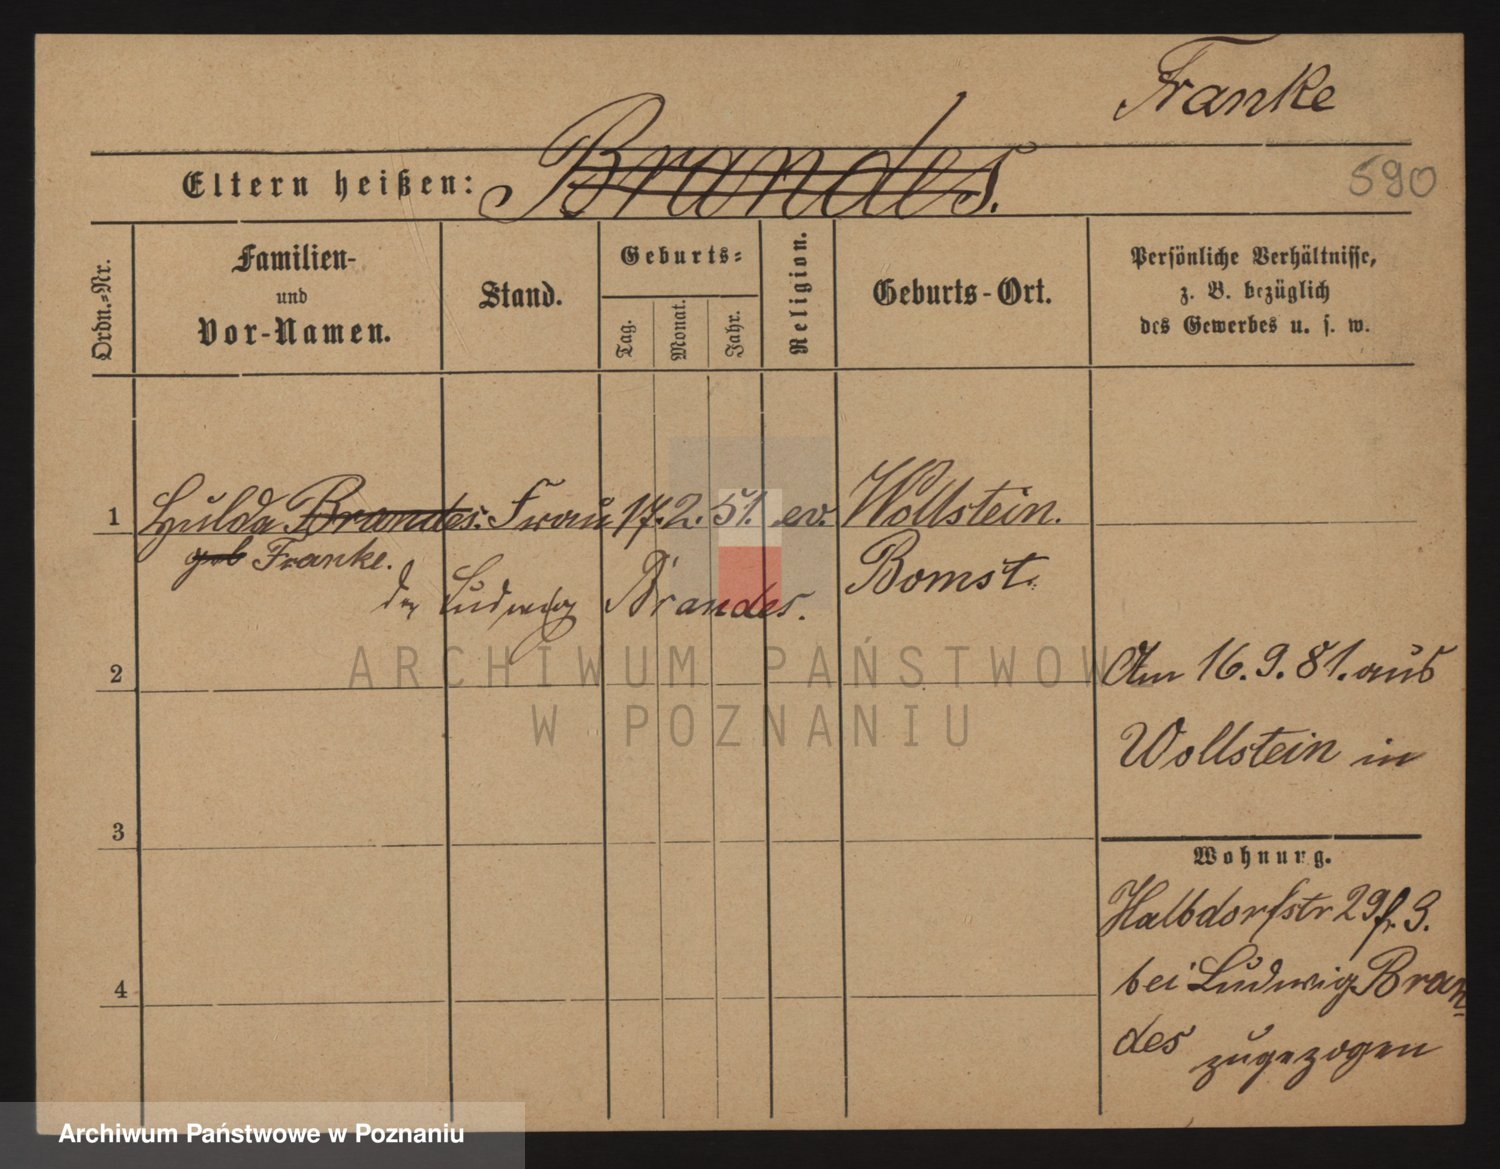 Franke
Eltern heißen: Brandes.
590
Ordn.=Nr.
Familien-
und
Vor-Namen.
Stand.
Geburts=
Tag.
Monat.
Jahr.
Religion.
Geburts-Ort.
Persönliche Verhältnisse,
z. B. bezüglich
des Gewerbes u. s. w.
1 Hulda Brandes. Frau 17. 2. 51. ev. Wollstein.
geb Franke.
Bomst.
Ludwig Brandes.
2
Am 16. 9. 81. aus
Wollstein in
3
Wohnung.
Halbdorfstr 29 3.
bei Ludwig Bran
des zugezogen
4
ARCHIWUM PAŃSTWOW
W POZNANIU
Archiwum Państwowe w Poznaniu